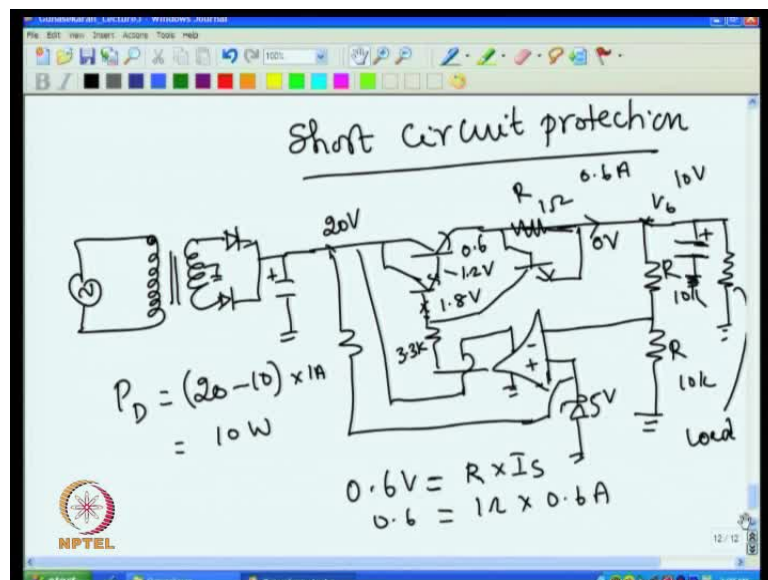 Gunasekaran_Lecture3 - Windows Journal
File Edit View Insert Actions Tools Help
100%
B I
Short circuit protection
R 1Ω 0.6A
20V
V6 10V
0.6
0V
1.2V
1.8V
R
10k
3.3K
R
10k
5V
Load
PD = (20-10) × 1A
= 10W
0.6V = R × Is
0.6 = 1Ω × 0.6A
NPTEL
12 / 12
start